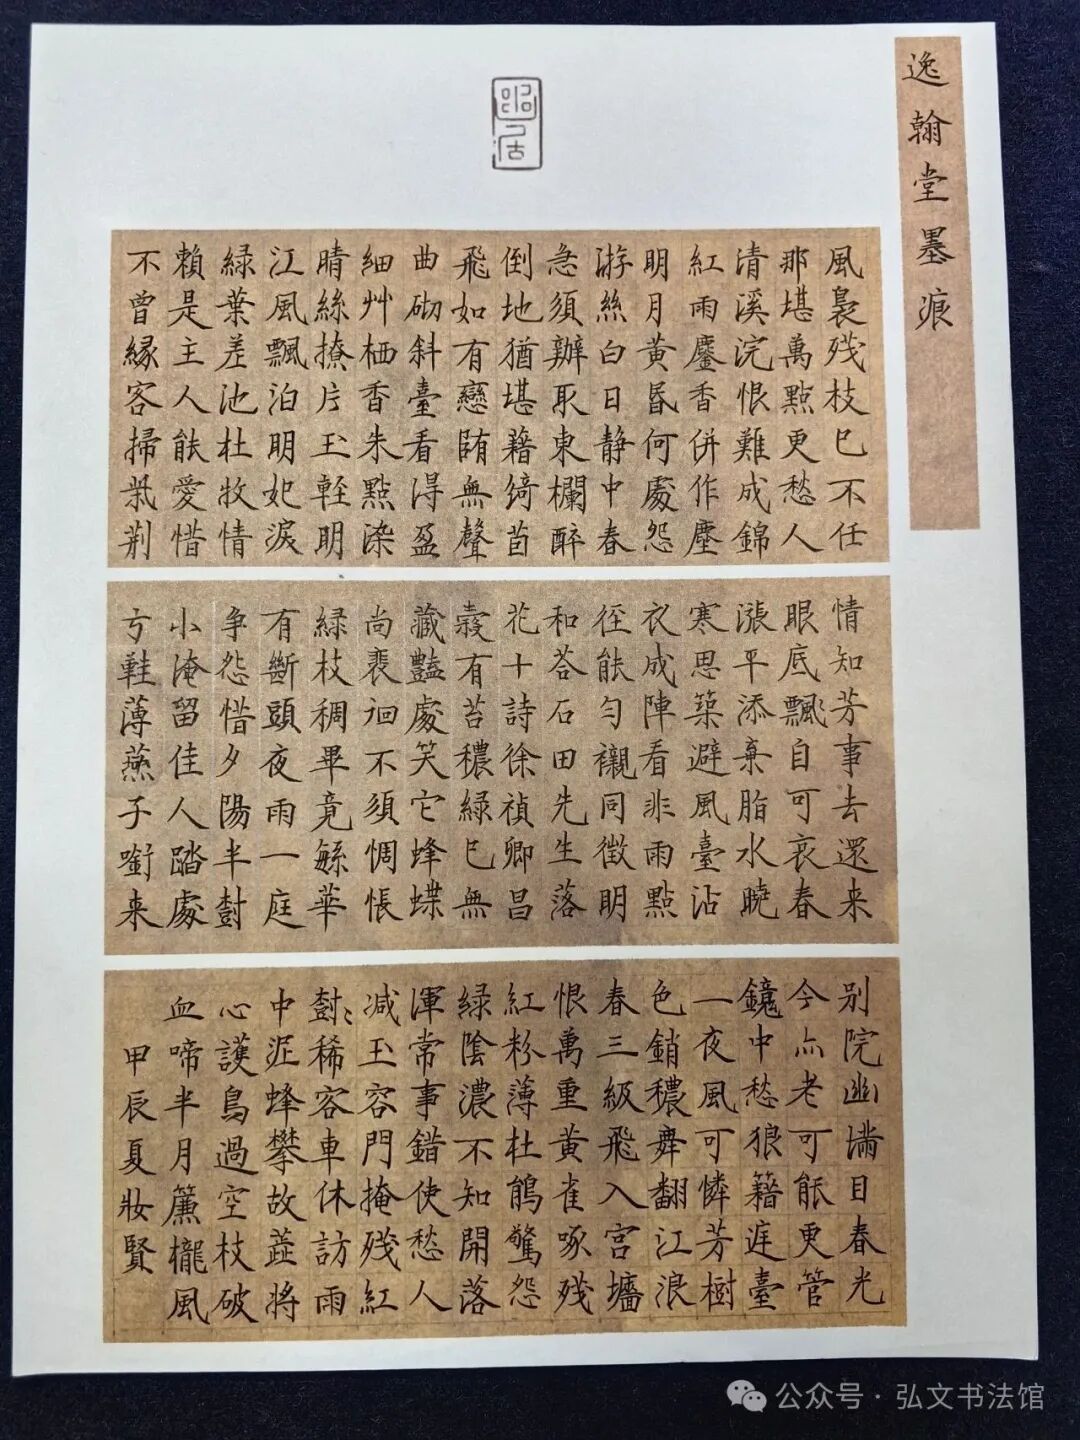 逸翰堂墨痕
幽居
風裊残枝已不任
那堪萬點更愁人
清溪浣恨難成錦
紅雨鏖香併作塵
明月黃昏何處怨
游絲白日静中春
急須辦取東欄醉
倒地猶堪藉綺茵
飛如有戀隨無聲
曲砌斜臺看得盈
細艸栖香朱點染
晴絲撩片玉輊明
江風飄泊明妃淚
緑葉差池杜牧情
賴是主人能愛惜
不曾緣客掃柴荆
情知芳事去還来
眼底飄々自可哀春
漲平添棄脂水曉
寒思築避風臺沾
衣成陣看非雨點
徑能勻襯同徵明
和荅石田先生落
花十詩徐禎卿昌
穀有苔穠緑已無
藏豔處笑它蜂蝶
尚裴徊不須惆悵
緑枝稠畢竟緐華
有斷頭夜雨一庭
争怨惜夕陽半樹
小淹留佳人踏處
弓鞋薄燕子銜来
別院幽满目春光
今亦老可能更管
鏡中愁狼籍庭臺
一夜風可憐芳樹
色銷穠舞翻江浪
春三級飛入宫墻
恨萬重黃雀啄残
紅粉薄杜鵑驚怨
緑陰濃不知開落
渾常事錯使愁人
减玉容門掩残紅
樹々稀客車休訪雨
中泥蜂攀故蕋將
心護鳥過空枝破
血啼半月簾櫳風
甲辰夏妝賢
公众号·弘文书法馆